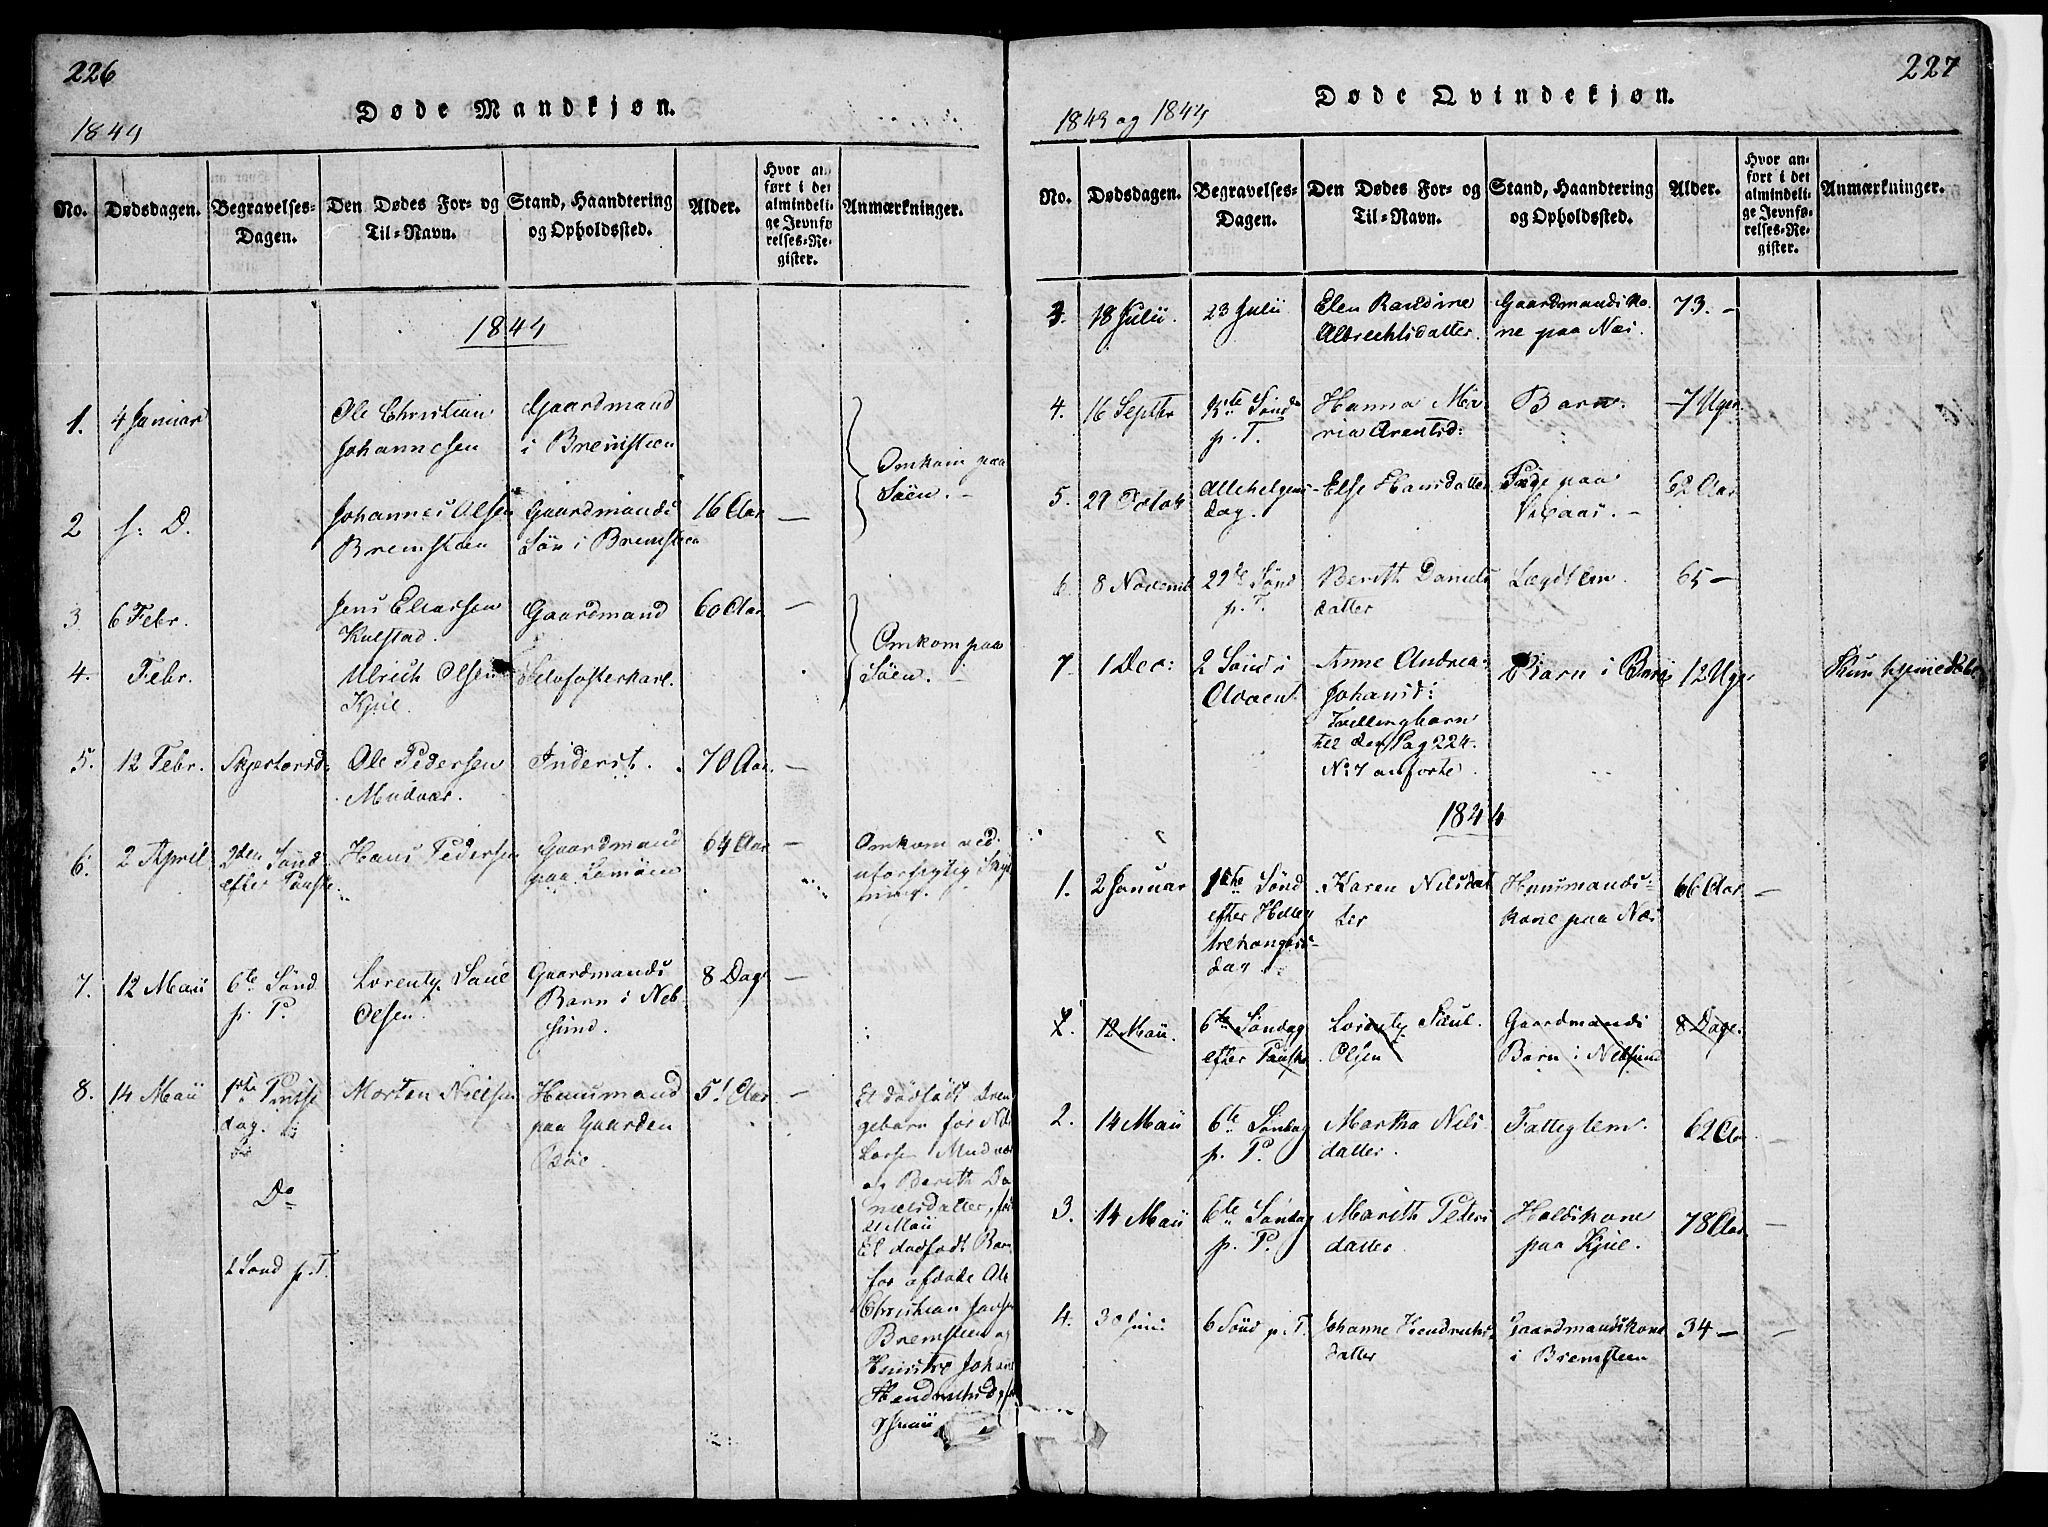 226
Døde Mandkjøn.
1844
No.
Dødsdagen.
Begravelses-
Dagen.
Den Dødes For- og
Til-Navn.
Stand, Haandtering
og Opholdssted.
Alder.
Hvor an-
ført i det
almindeli-
ge Jevnfø-
relses-Re-
gister.
Anmærkninger.
1844
1.
4 Januar
Ole Christian
Johannesen
Gaardmand
i Bremsteen
Omkom paa
Søen. -
2
s: D.
Johannes Olsen
Bremsteen
Gaardmands
Søn i Bremsteen
16 Aar
3
6 Febr.
Jens Eliassen
Kulstad.
Gaardmand
60 Aar
Omkom paa
Søen. -
4.
Febr.
Ulrich Olsen
Kjul.
5.
12 Febr.
Ole Pedersen
Mudvær.
Inderst.
70 Aar.
6.
2 April
2den Sønd
efter Paaske
Hans Pedersen
Gaardmand
64 Aar
Omkom ved
uforsigtig
7.
12 Maii
6te Sønd
p. P.
Lorentz Paul
Olsen.
Gaardmands
Barn i Neb-
sund.
8 Dage
8.
14 Maii
1ste Pintse
dag.
Morten Nielsen
Huusmand
paa Gaarden
51 Aar
Et dødfødt Dren
gebarn for
Larsen Mudvær
og Berith Da
nielsdatter, fød
Maii
Et dødfødt Barn
for afdøde Ole
Christian Johansen
Bremsteen og
Huustroe Johanne
Do
2 Sønd p. T.
227
Døde Qvindekjøn.
1843 og 1844
No.
Dødsdagen.
Begravelses-
Dagen.
Den Dødes For- og
Til-Navn.
Stand, Haandtering
og Opholdssted.
Alder.
Hvor an-
ført i det
almindeli-
ge Jevnfø-
relses-Re-
gister.
Anmærkninger.
3.
18 Julii.
23 Julii
Elen
Albrechtsdatter.
Gaardmandsko-
ne paa Næs
73. -
4.
16 Septbr
Sønd
p. T.
Hanna Ma
ria Arentsd:
Barn.
7 Uger
5.
29 Octob
Allehelgens
dag.
Else Hansdatter
paa
62 Aar
6.
8 Novemb
22de Sønd
p. T.
Berith Daniels
datter
Lægdslem.
65 -
7.
1 Dec:
2 Sønd i
Advent.
Anne Andrea
Johansd:
Tvillingbarn
til den Pag 224.
No 7 anførte.
Barn i
12 Uger
Kun hjemmedøbt
1844
1.
2 Januar
1ste Sønd
efter Hellig
trekongers-
dag.
Karen Nilsdat
ter
Huusmands-
kone paa Næs
66 Aar
2.
12 Maii.
6te Søndag
efter Paaske
Lorentz Paul
Olsen
Gaardmands
Barn i Nebsund
8 Dage.
2.
14 Maii
6te Søndag
p. P.
Martha Nils
datter.
Fattiglem.
62 Aar
3.
14 Maii
6te Søndag
p. P.
Marith Peders
datter.
Holdskone
paa Kjul.
78 Aar.
4.
30 Juni
6 Sønd p. T.
Johanne Hendrichs
datter
Gaardmandskone
i Bremsteen
34 -